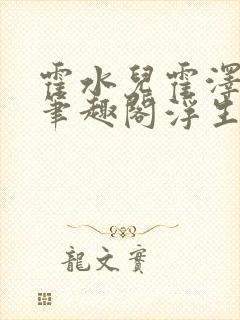 霍水兒霍澤
筆趣閣浮生
龍文實